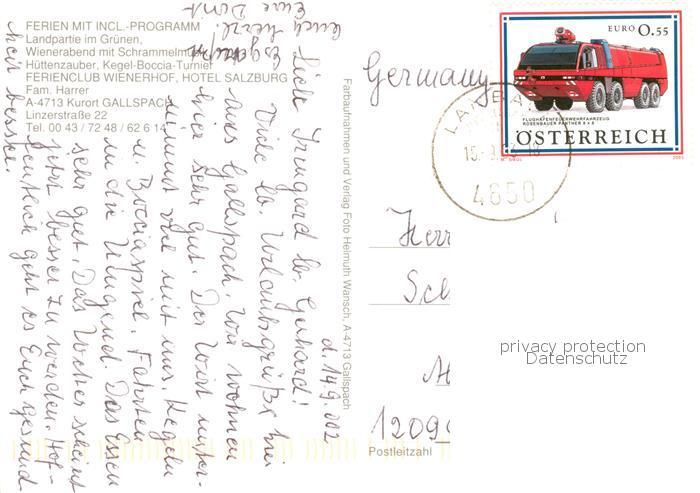 FERIEN MIT INCL.-PROGRAMM
Landpartie im Grünen,
Wienerabend mit Schrammelmusik
Hüttenzauber, Kegel-Boccia-Turnier
FERIENCLUB WIENERHOF, HOTEL SALZBURG
Fam. Harrer
A-4713 Kurort GALLSPACH
Linzerstraße 22
Tel. 00 43 / 72 48 / 62 6 14
d. 14.9.002
Liebe Irmgard lb. Gerhard!
Viele lb. Urlaubsgrüße hier
aus Gallspach. Wir wohnen
hier sehr gut. Der Wirt unter-
nimmt viel mit uns. Kegeln
u. Bocciaspiel. Fahrten
in die Umgend. Das Essen
sehr gut. Das Wetter scheint
jetzt besser zu werden. Hof-
fentlich geht es Euch gesund-
heit besser.
Euch herzl.
Eure
Farbaufnahmen und Verlag Foto Helmuth Wansch, A-4713 Gallspach
Germany
EURO 0.55
FLUGHAFENFEUERWEHRFAHRZEUG
ROSENBAUER PANTHER 8 x 8
ÖSTERREICH
4650
Herr
Sch
1209
Postleitzahl
privacy protection
Datenschutz